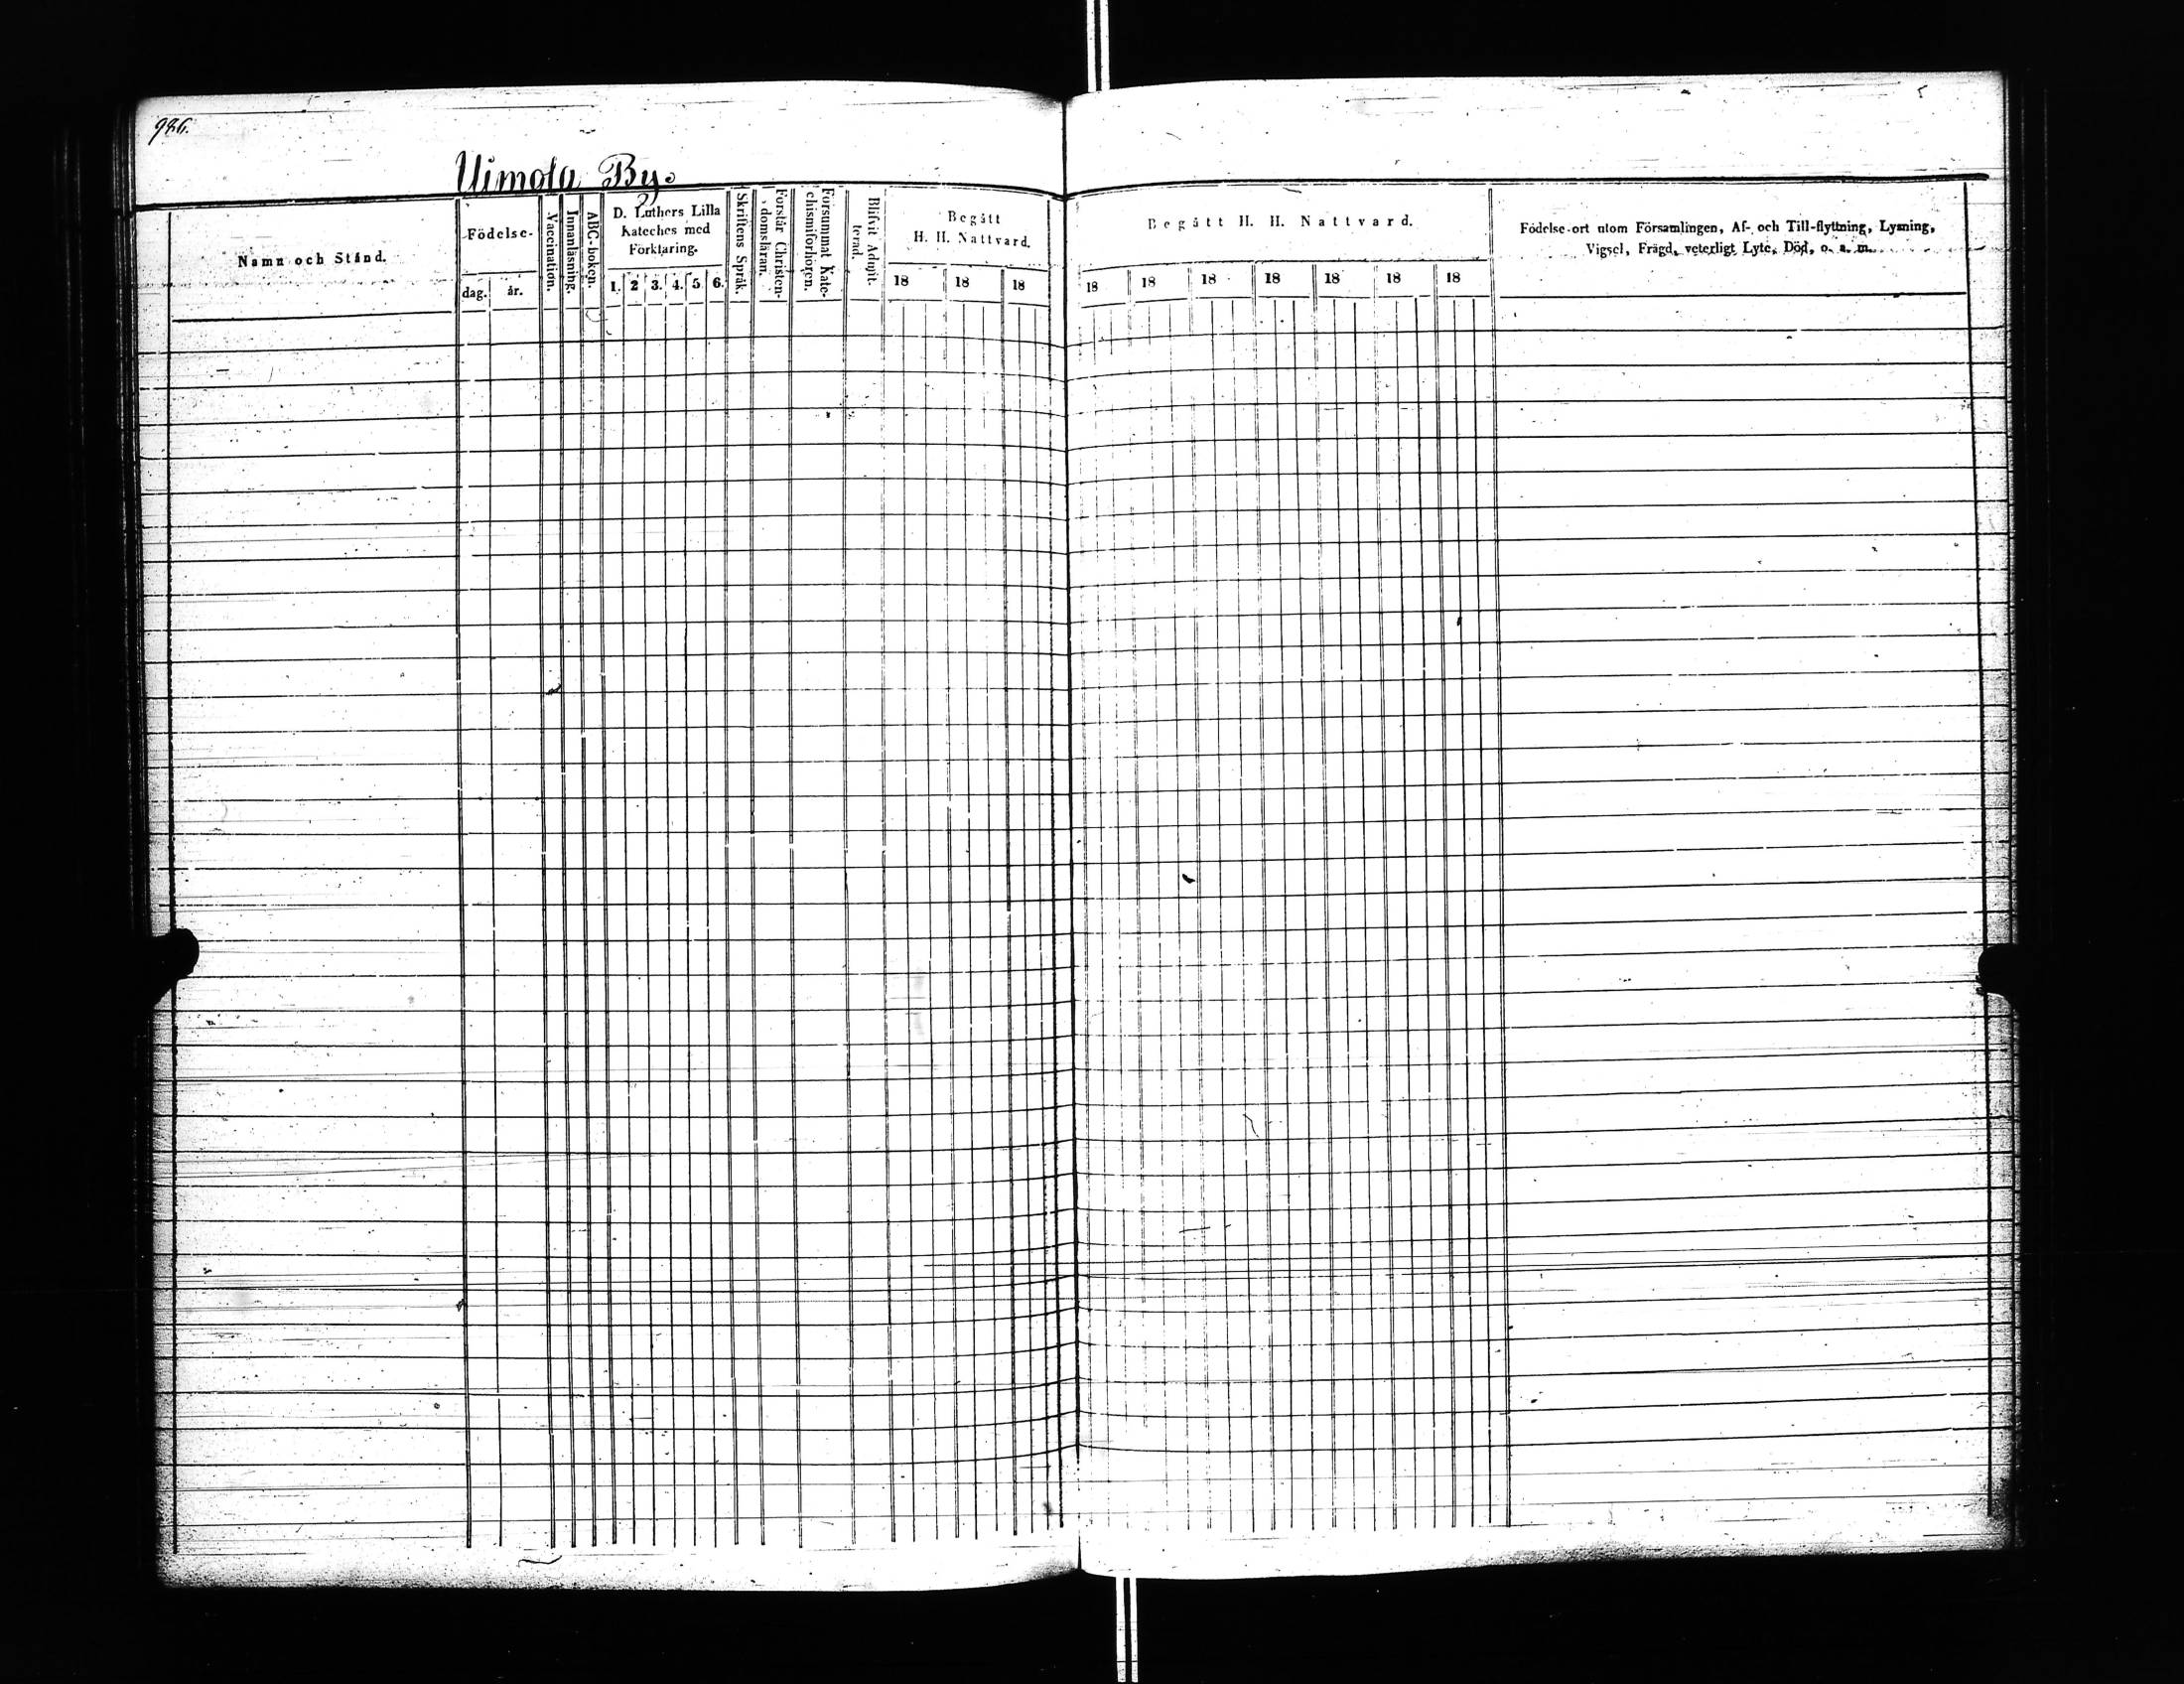 986.
Uimola By.
Namn och Stånd.
Födelse-
dag. år.
Vaccination.
Innanläsning.
ABC-boken.
D. Luthers Lilla
Kateches med
Förklaring.
1. 2 3. 4. 5. 6.
Skriftens Språk.
Förstår Christen-
domsläran.
Försummat Kate-
chismiförhören.
Blifvit Admit-
terad.
Begått
H. H. Nattvard.
18 18 18
Begått H. H. Nattvard.
18 18 18 18 18 18 18
Födelse-ort utom Församlingen, Af- och Till-flyttning, Lysning,
Vigsel, Frägd, veterligt Lyte, Död, o. s. m.